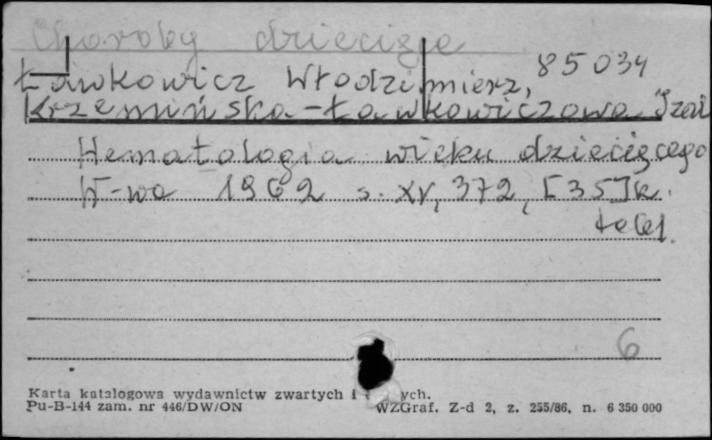 Choroby dziecięce
Ławkowicz Włodzimierz, 85034
Krzemińska-Ławkowiczowa
Hematologia wieku dziecięcego
W-wa 1962 s. XV, 372, [35] k.
tabl.
6
Karta katalogowa wydawnictw zwartych i ych.
Pu-B-144 zam. nr 446/DW/ON WZGraf. Z-d 2, z. 255/86, n. 6 350 000